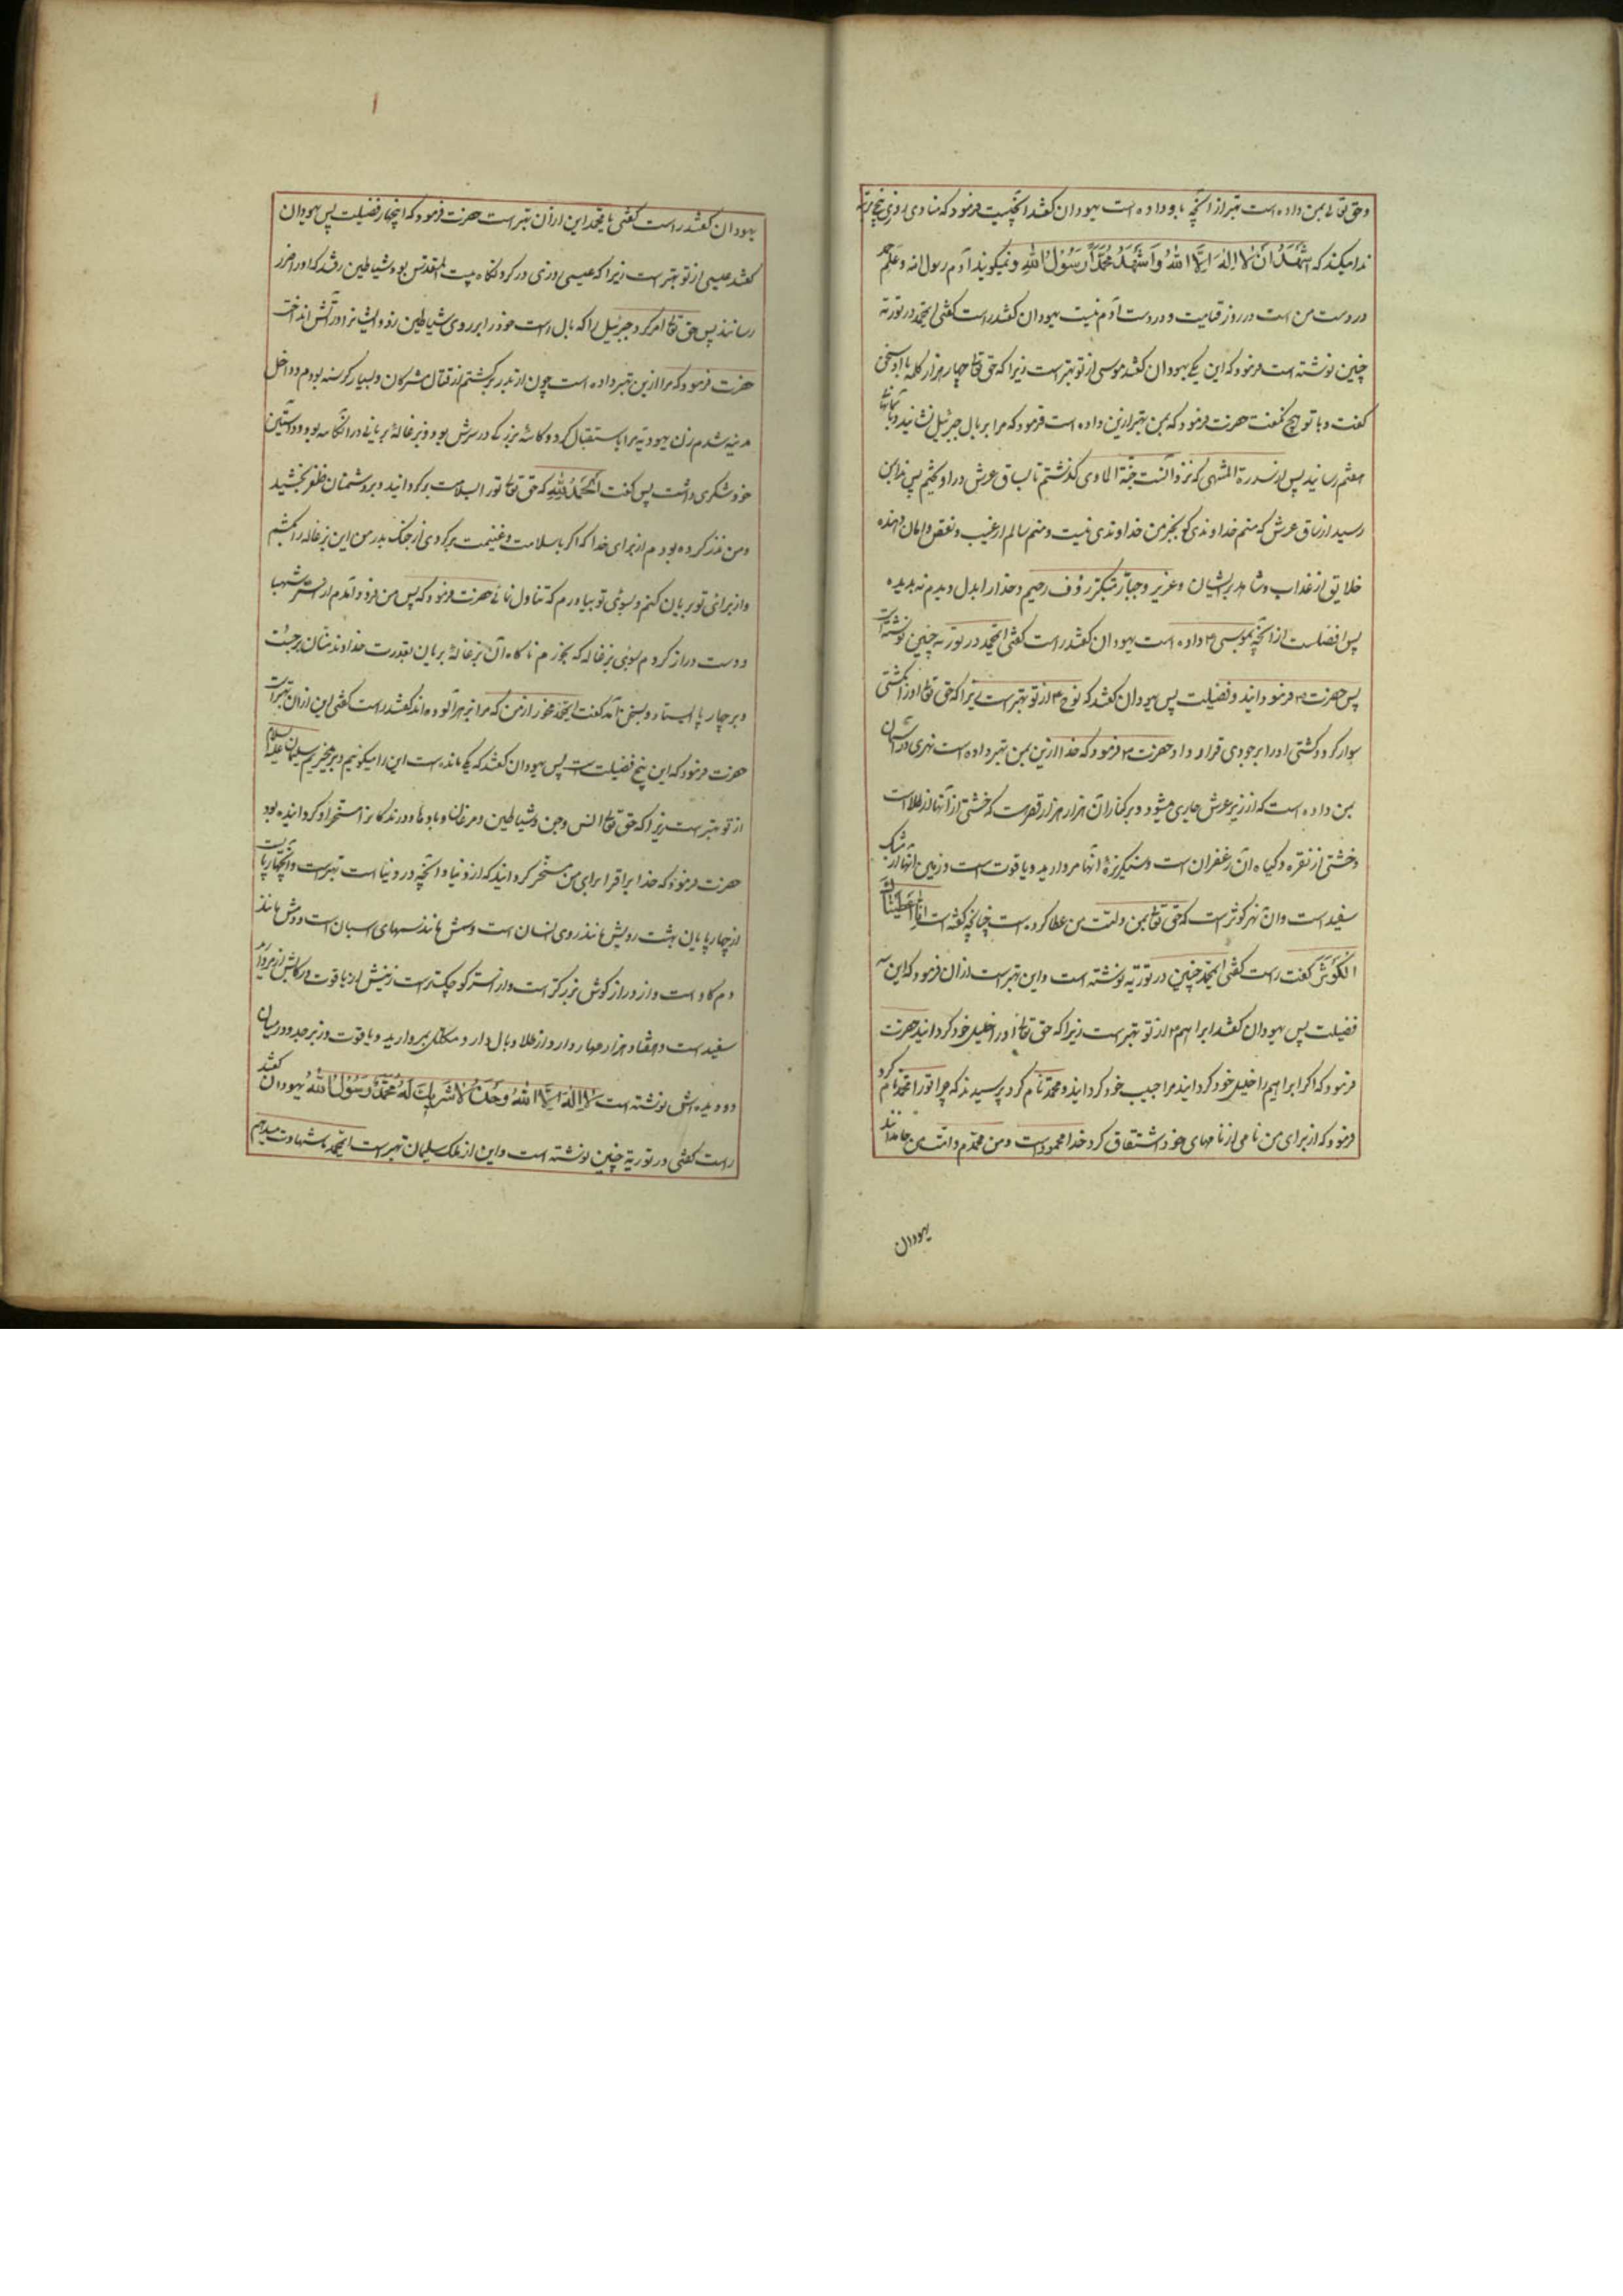 وحق تعالی بمن داده است بهتر از آنچه باو داده است یهودان کفتند آنچیست فرمود که منادی روزی پنج مرتبه
ندا میکند که اَشْهَدُ اَنْ لا اِلٰهَ اِلَّا اللهُ وَاَشْهَدُ اَنَّ مُحَمَّداً رَسُوْلُ اللهِ ونمیکویند آدم رسول الله وعلم حمد
در دست من است در روز قیامت و در دست آدم نیست یهودان کفتند راست کفتی ایمحمد در توریة
چنین نوشته است فرمود که این یکی یهودان کفتند موسی از تو بهتر است زیرا که حق تعا چهار هزار کلمه با او سخن
کفت و با تو هیچ نکفت حضرت فرمود که بمن بهتر ازین داده است فرمود که مرا بر بال جبرئیل نشانید و بآسمان
هفتم رسانید پس از سدرة المنتهی که نزد آنست جنة المأوی کذشتم تا بساق عرش در آویختم پس ندا بمن
رسید از ساق عرش که منم خداوندی که بجز من خداوندی نیست ومنم سالم از عیب ونقص وامان دهنده
خلایق از عذاب وشاهد بر ایشان وعزیز وجبار ومتکبر رؤف رحیم وخدا را بدل دیدم نه بدیده
پس افضلست از آنچه بموسی ۴ داده است یهودان کفتند راست کفتی ایمحمد در توریه چنین نوشته است
پس حضرت ص فرمود ایند و فضیلت پس یهودان کفتند که نوح ۴ از تو بهتر است زیرا که حق تعا او را بکشتی
سوار کرد و کشتی او را بر جودی قرار داد حضرت ص فرمود که خدا ازین بمن بهتر داده است نهری در آسمان
بمن داده است که از زیر عرش جاری میشود و بر کنار آن هزار هزار قصر است که خشتی از آنها از طلا است
وخشتی از نقره وکیاه آن زعفران است وسنکریزهٔ آنها مروارید ویاقوت است وزمین آنها از مشک
سفید است وآن نهر کوثر است که حق تعا بمن وامت من عطا کرده است چنانچه کفته است اِنَّا اَعْطَیْنَاكَ
الْكَوْثَرَ کفت راست کفتی ایمحمد چنین در توریه نوشته است واین بهتر است از آن فرمود که این سه
فضیلت پس یهودان کفتند ابراهیم ۴ از تو بهتر است زیرا که حق تعا او را خلیل خود کردانید حضرت
فرمود که اکر ابراهیم را خلیل خود کردانید مرا حبیب خود کردانید ومحمد نام کرد پرسیدند که چرا تو را محمد نام کرد
فرمود که از برای من نامی از نامهای خود اشتقاق کرد خدا محمود است ومن محمدم وامت من حامدانند
یهودان
یهودان کفتند راست کفتی یا محمد این از آن بهتر است حضرت فرمود که اینچهار فضیلت پس یهودان
کفتند عیسی از تو بهتر است زیرا که عیسی روزی در کرد نکاه بیت المقدس بود شیاطین رفتند که او را ضرر
رسانند پس حق تعا امر کرد جبرئیل را که بال راست خود را بر روی شیاطین زد و ایشانرا در آتش انداخت
حضرت فرمود که مرا ازین بهتر داده است چون از بدر بر کشتم از قتال مشرکان وبسیار کرسنه بودم وداخل
مدینه شدم زن یهودیه مرا باستقبال کرد و کاسهٔ بزرکی در سرش بود وبزغالهٔ بریانی در آنکاسه بود و در آستین
خود شکری داشت پس کفت اَلْحَمْدُ لِلّٰهِ که حق تعا تو را بسلامت بر کردانید وبر دشمنان ظفر بخشید
ومن نذر کرده بودم از برای خدا که اکر با سلامت وغنیمت بر کردی از جنک بدر من این بزغاله را بکشم
واز برای تو بریان کنم وبسوی تو بیاورم که تناول نمائی حضرت فرمود که پس من فرود آمدم از استر شهبا
ودست دراز کردم بسوی بزغاله که بخورم ناکاه آن بزغالهٔ بریان بقدرت خداوند منان برجست
وبر چار پا ایستاد وبسخن آمد کفت ایمحمد مخور از من که مرا بزهر آلوده اند کفتند راست کفتی این از آن بهتر است
حضرت فرمود که این پنج فضیلت است پس یهودان کفتند که یکی مانده است این را میکوئیم وبرمیخیزیم سلیمان علیه السلام
از تو بهتر است زیرا که حق تعا انس وجن وشیاطین ومرغان وبادها ودرندکانرا مسخر او کردانیده بود
حضرت فرمود که خدا براق را برای من مسخر کردانید که از دنیا وآنچه در دنیا است بهتر است وآنچهارپائیست
از چارپایان بهشت رویش مانند روی انسان است وسمش مانند سمهای اسبان است ودمش مانند
دم کاو است واز دراز کوش بزرکتر است واز استر کوچکتر است زینش از یاقوت ورکابش از مروارید
سفید است وهفتاد هزار مهار دارد از طلا وبال دارد مکلل بمروارید ویاقوت وزبرجد ودر میان
دو دیده اش نوشته است لا اِلٰهَ اِلَّا اللهُ وَحْدَهُ لا شَرِیْكَ لَهُ مُحَمَّدٌ رَسُوْلُ اللهِ یهودان کفتند
راست کفتی در توریة چنین نوشته است واین از ملک سلیمان بهتر است ایمحمد شهادت میدهیم